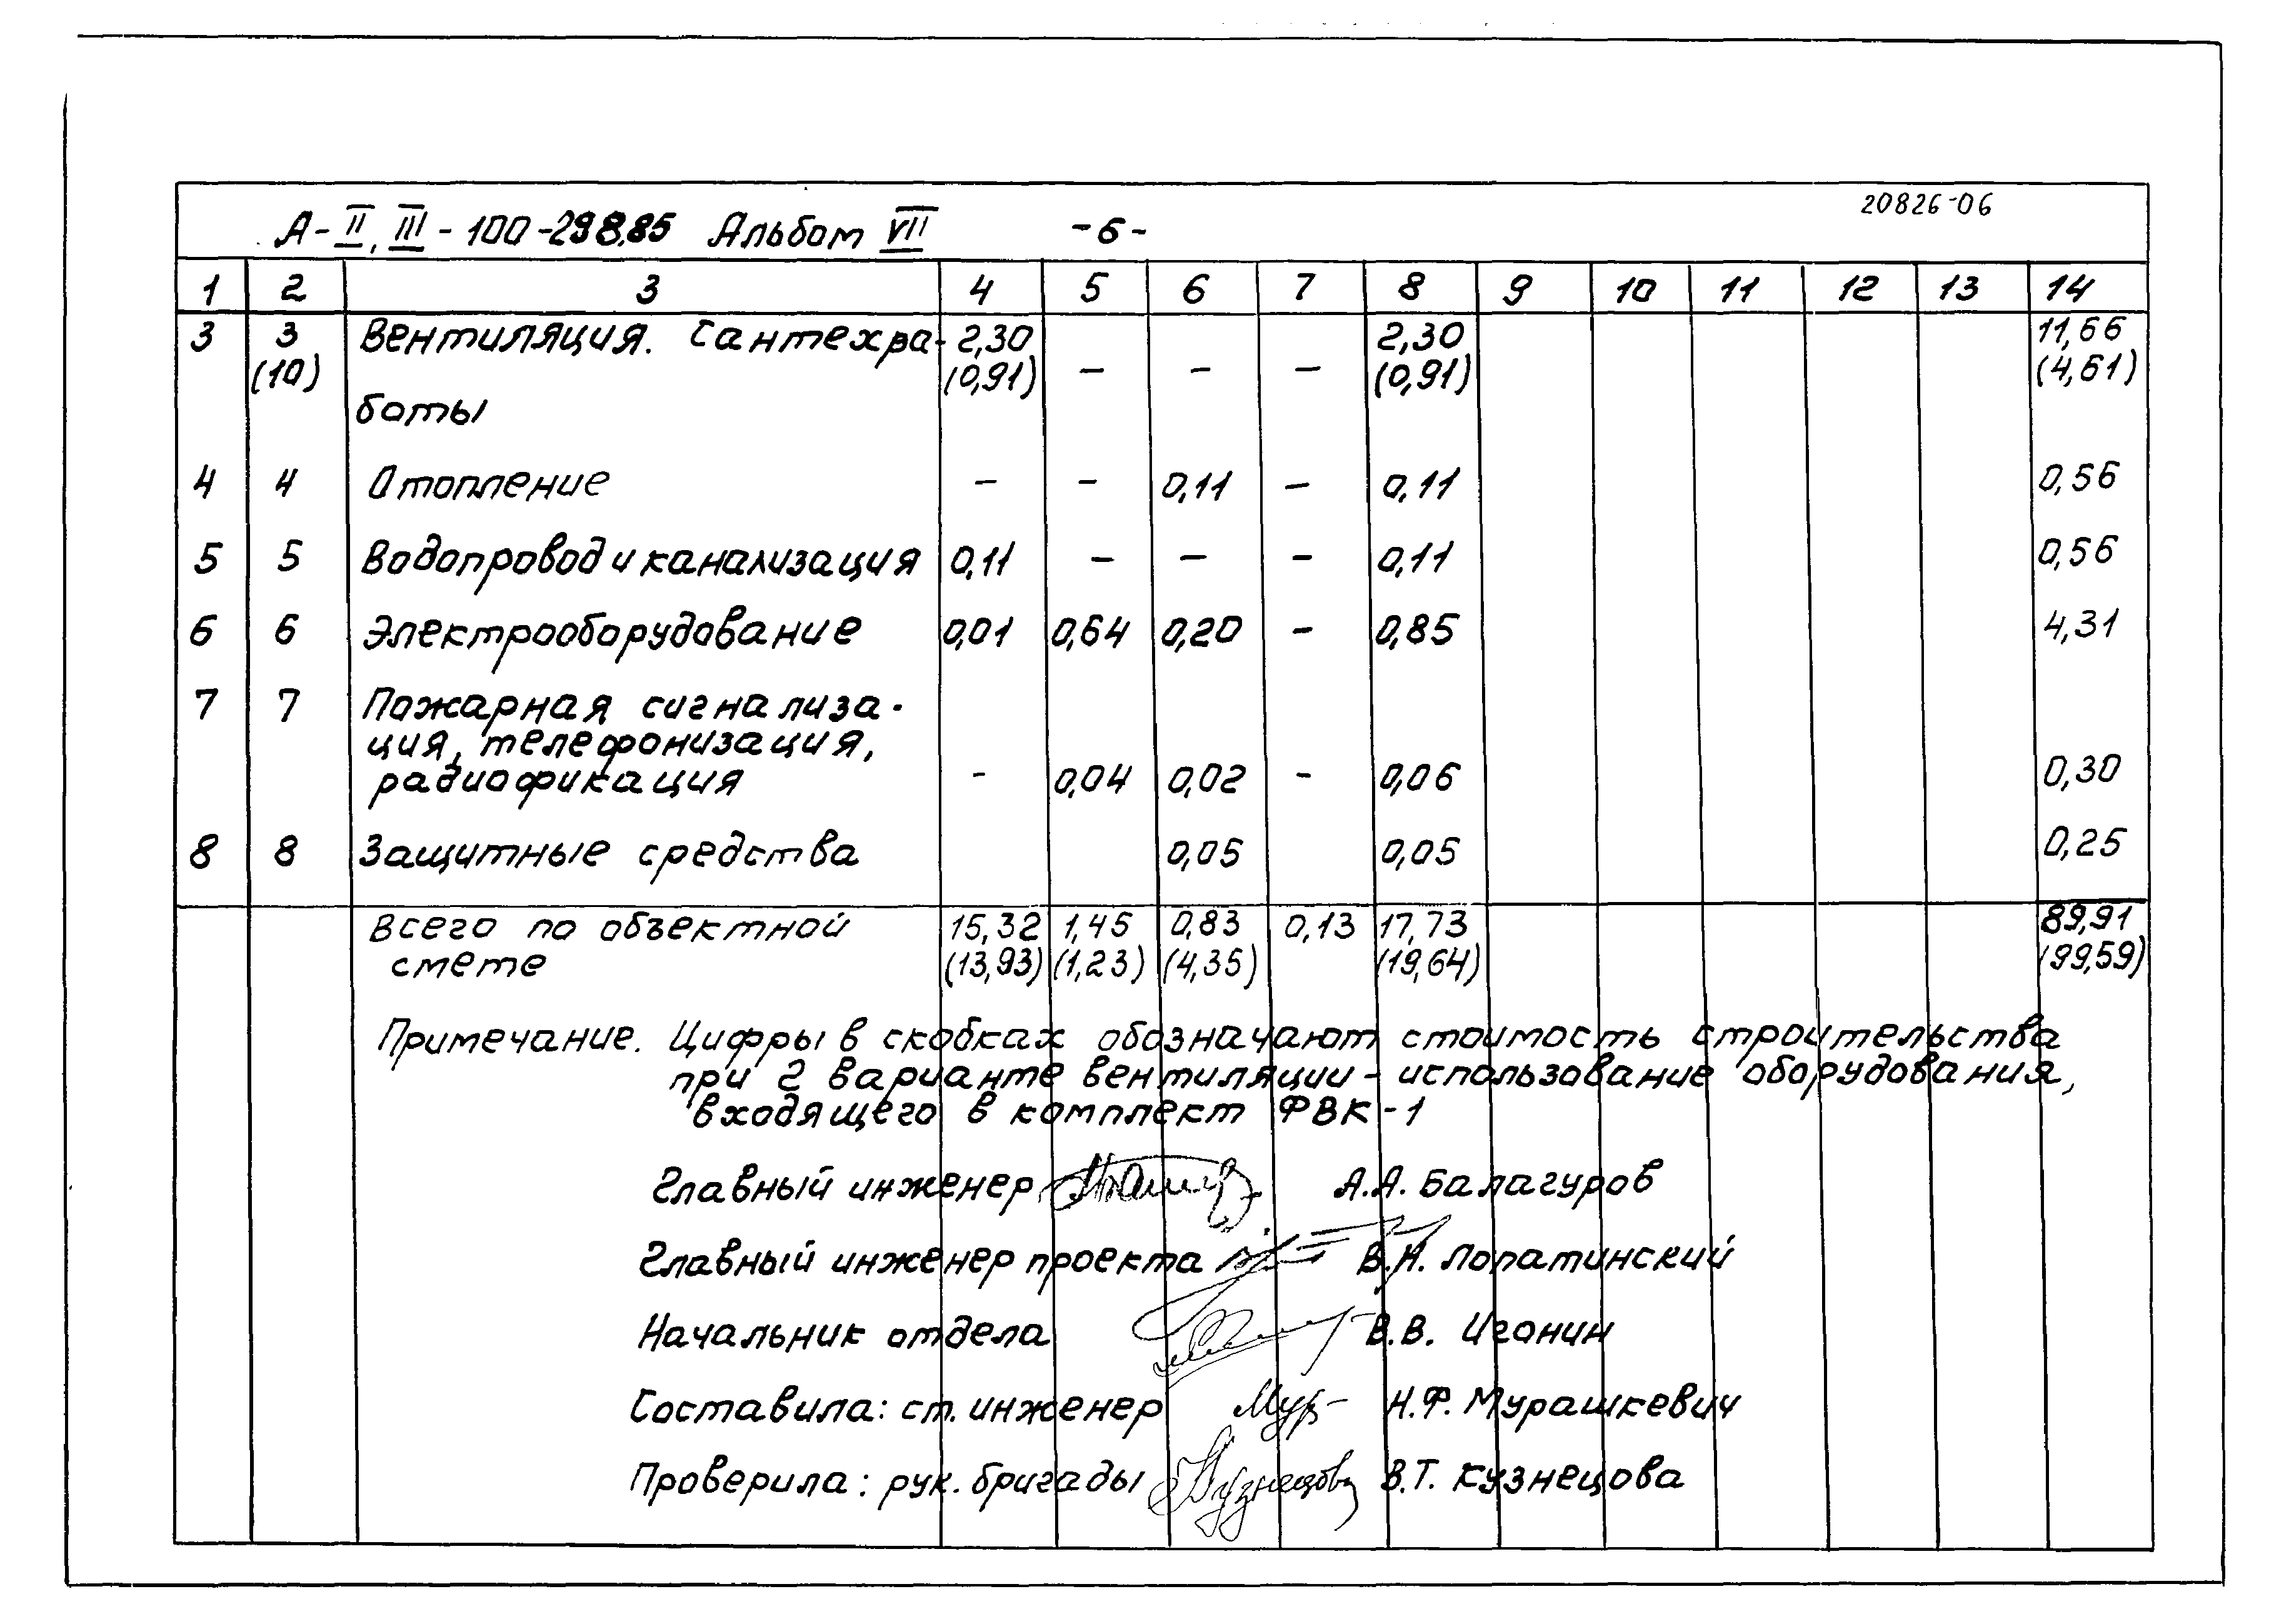 20826-06
А-II, III-100-298.85 Альбом VII -6-
1 2 3 4 5 6 7 8 9 10 11 12 13 14
3 3 Вентиляция. Сантехра- 2,30 2,30 11,66
(10) (0,91) - - - (0,91) (4,61)
боты
4 4 Отопление - - 0,11 - 0,11 0,56
5 5 Водопровод и канализация 0,11 - - - 0,11 0,56
6 6 Электрооборудование 0,01 0,64 0,20 - 0,85 4,31
7 7 Пожарная сигнализа-
ция, телефонизация,
радиофикация - 0,04 0,02 - 0,06 0,30
8 8 Защитные средства 0,05 0,05 0,25
Всего по объектной 15,32 1,45 0,83 0,13 17,73 89,91
смете (13,93) (1,23) (4,35) (19,64) (99,59)
Примечание. Цифры в скобках обозначают стоимость строительства
при 2 варианте вентиляции - использование оборудования,
входящего в комплект ФВК-1
Главный инженер А.А. Балагуров
Главный инженер проекта В.Н. Лопатинский
Начальник отдела В.В. Игонин
Составила: ст. инженер Мур- Н.Ф. Мурашкевич
Проверила: рук. бригады Кузнецова В.Т. Кузнецова